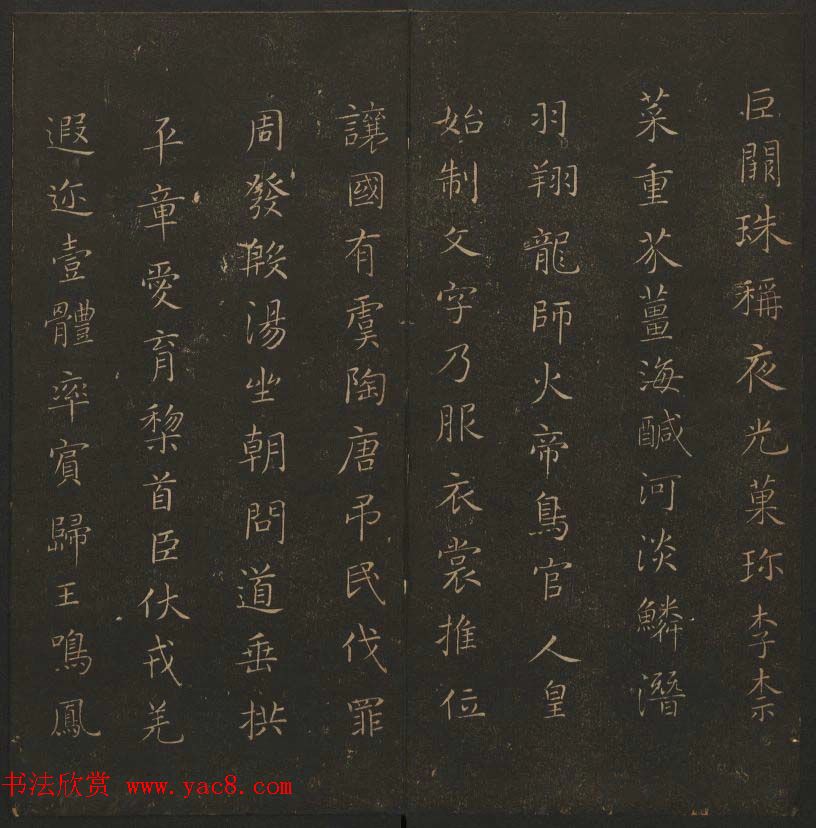 巨闕珠稱夜光菓珎李柰
菜重芥薑海醎河淡鱗潛
羽翔龍師火帝鳥官人皇
始制文字乃服衣裳推位
讓國有虞陶唐弔民伐罪
周發殷湯坐朝問道垂拱
平章愛育黎首臣伏戎羌
遐迩壹體率賓歸王鳴鳳
书法欣赏 www.yac8.com